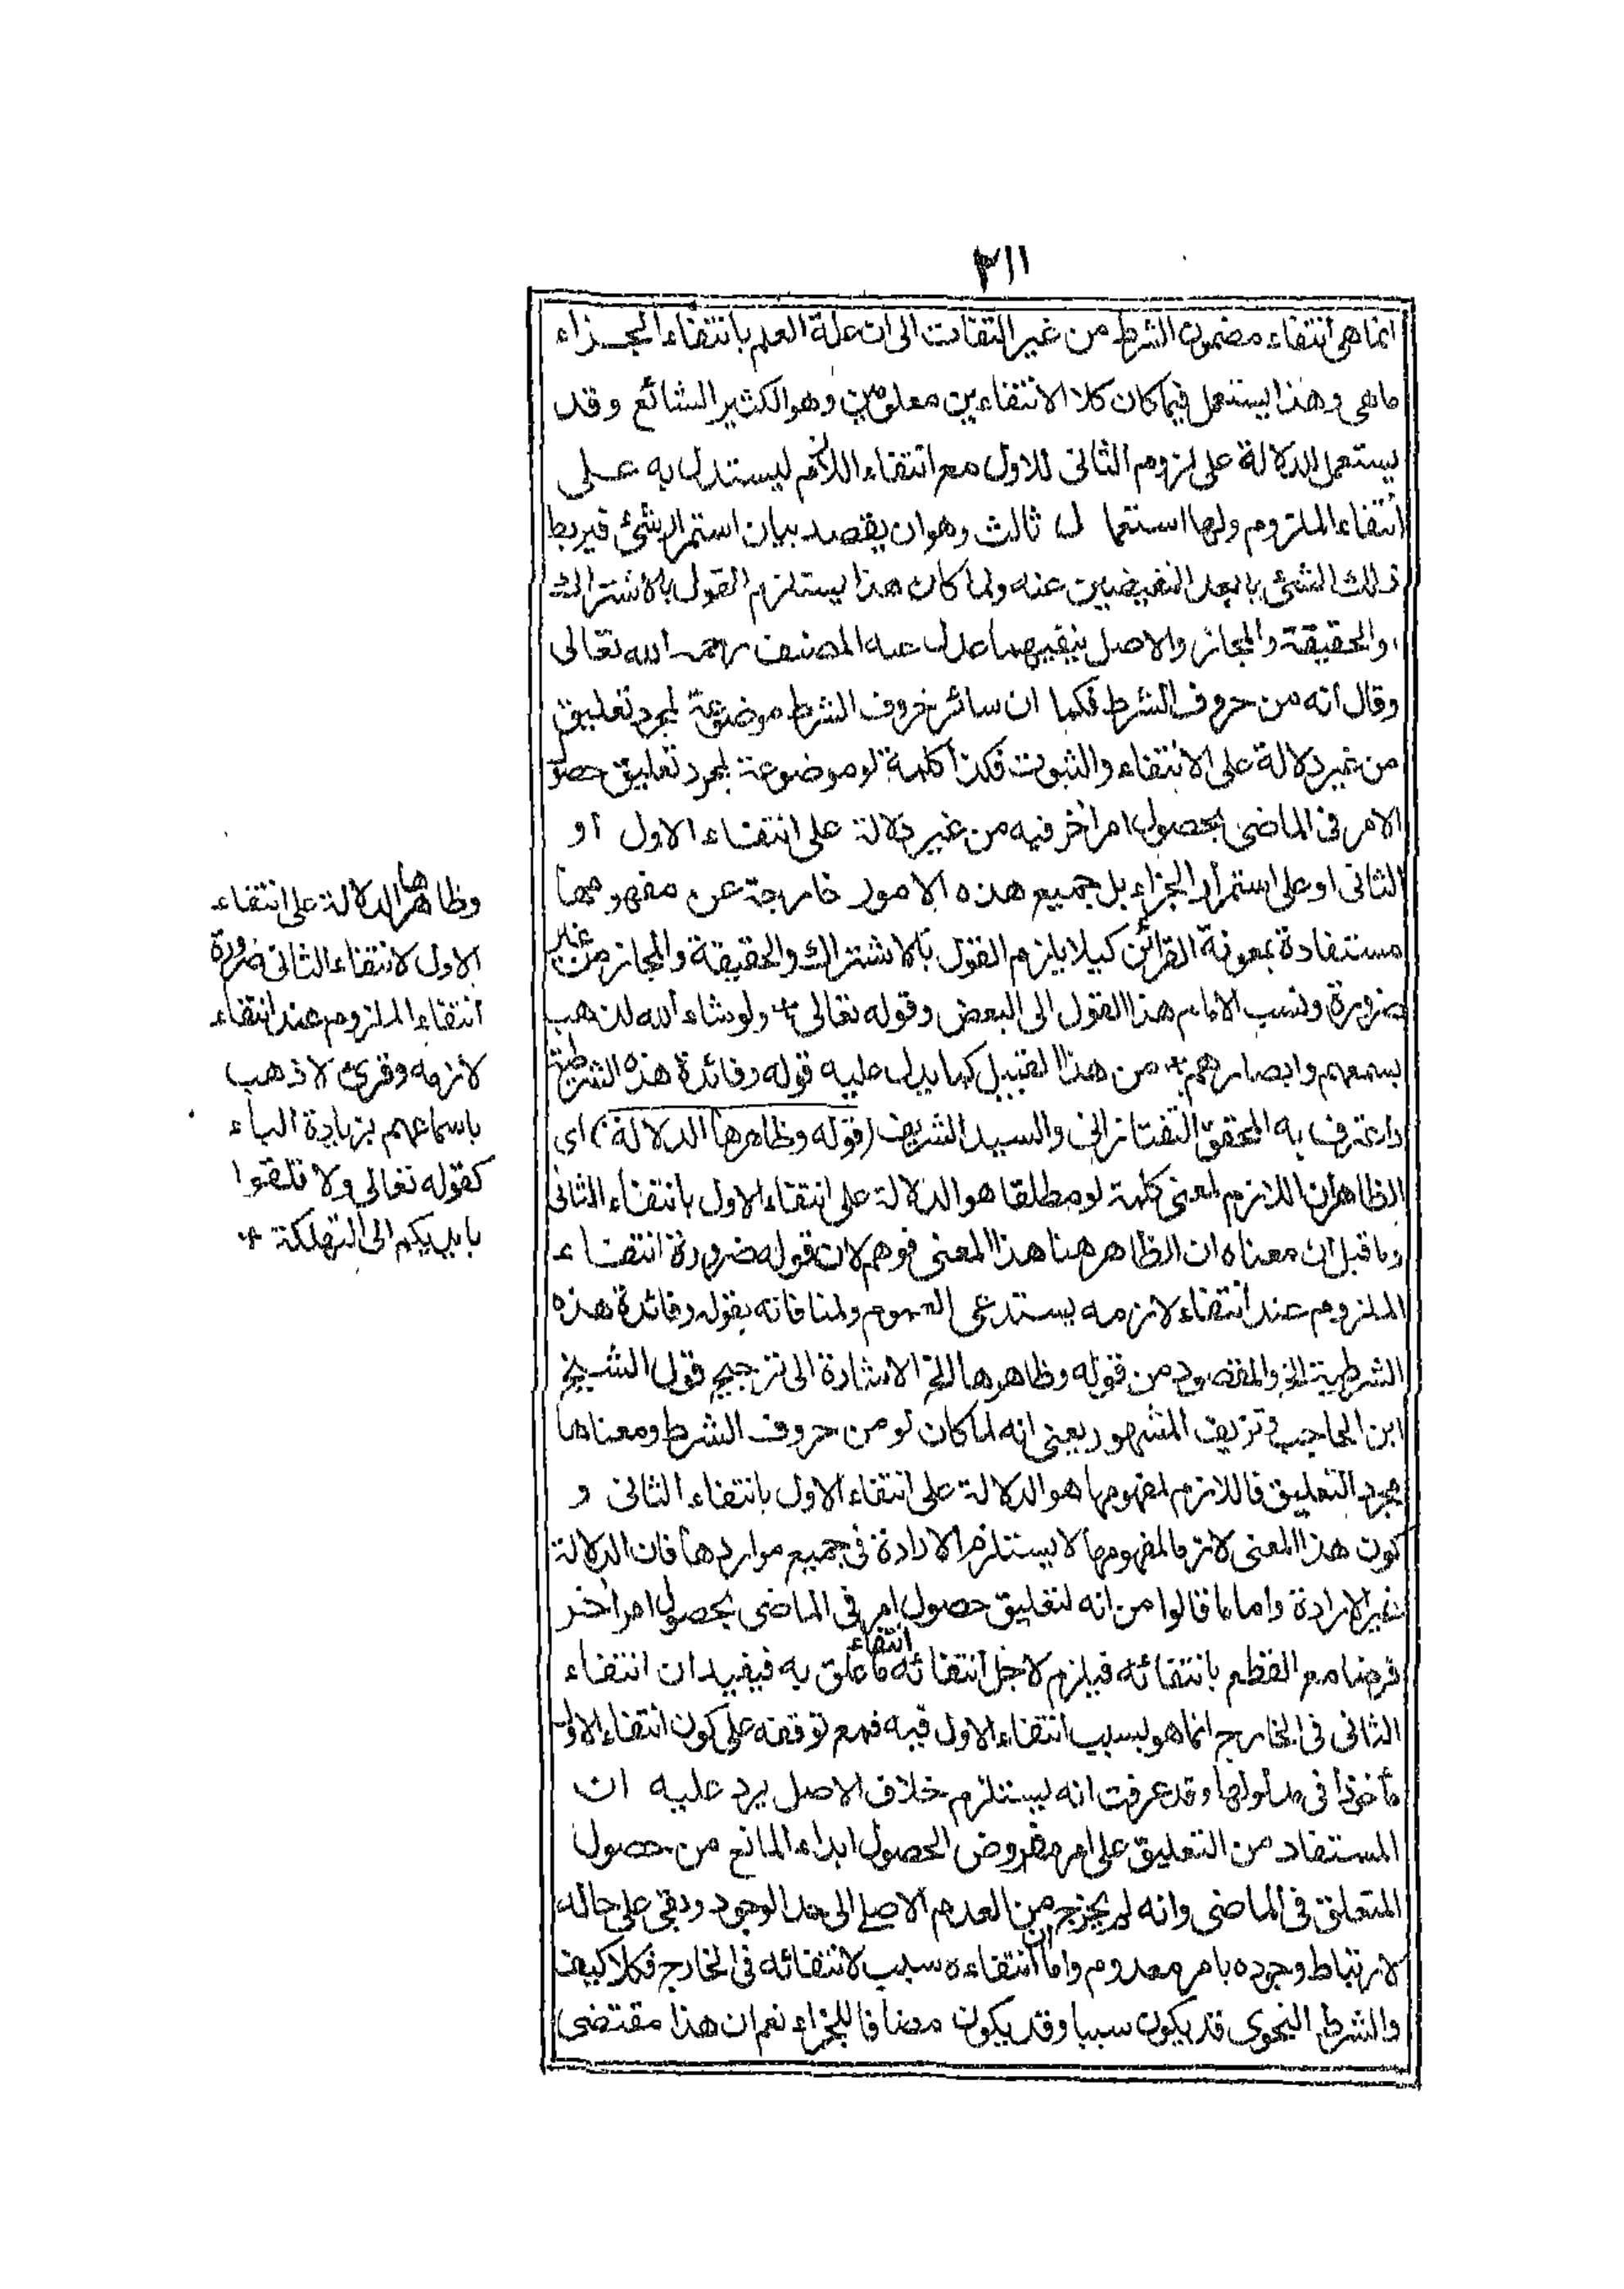 ٣١١
انما هى انتفاء مضمون الشرط من غير التفات الى ان علة العلم بانتفاء الجزاء
ما هى وهذا يستعمل فيما كان كلا الانتفاءين معلومين وهو الكثير الشائع وقد
يستعمل للدلالة على لزوم الثانى للاول مع انتفاء اللازم ليستدل به على
انتفاء الملزوم ولها استعمال ثالث وهو ان يقصد بيان استمرار شئ فيربط
ذلك الشئ بابعد النقيضين عنه ولما كان هذا يستلزم القول بالاشتراك
والحقيقة والمجاز والاصل ينفيهما عدل عنه المصنف رحمه الله تعالى
وقال انه من حروف الشرط فكما ان سائر حروف الشرط موضوعة لمجرد تعليق
من غير دلالة على الانتفاء والثبوت فكذا كلمة لو موضوعة لمجرد تعليق حصول
الامر فى الماضى بحصول امر اخر فيه من غير دلالة على انتفاء الاول او
الثانى او على استمرار الجزاء بل جميع هذه الامور خارجة عن مفهومها
مستفادة بمعونة القرائن كيلا يلزم القول بالاشتراك والحقيقة والمجاز من غير
ضرورة ونسب الامام هذا القول الى البعض وقوله تعالى ولو شاء الله لذهب
بسمعهم وابصارهم من هذا القبيل كما يدل عليه قوله وفائدة هذه الشرطية
واعترف به المحقق التفتازانى والسيد الشريف (قوله وظاهرها الدلالة) اى
الظاهر ان اللازم لمعنى كلمة لو مطلقا هو الدلالة على انتفاء الاول بانتفاء الثانى
وما قيل ان معناه ان الظاهر هنا هذا المعنى فوهم لان قوله ضرورة انتفاء
الملزوم عند انتفاء لازمه يستدعى العموم ولمنافاته بقوله وفائدة هذه
الشرطية الخ والمقصود من قوله وظاهرها الخ الاشارة الى ترجيح قول الشيخ
ابن الحاجب وتزييف المشهور يعنى انه لما كان لو من حروف الشرط ومعناها
مجرد التعليق فاللازم لمفهومها هو الدلالة على انتفاء الاول بانتفاء الثانى و
كون هذا المعنى لازما لمفهومها لا يستلزم الارادة فى جميع مواردها فان الدلالة
غير الارادة واما ما قالوا من انه لتعليق حصول امر فى الماضى بحصول امر اخر
فرضا مع القطع بانتفائه فيلزم لاجل انتفائه انتفاء ما علق به فيفيد ان انتفاء
الثانى فى الخارج انما هو بسبب انتفاء الاول فيه فمع توقفه على كون انتفاء الاول
مأخوذا فى مدلولها وقد عرفت انه يستلزم خلاف الاصل يرد عليه ان
المستفاد من التعليق على امر مفروض الحصول ابداء المانع من حصول
المتعلق فى الماضى وانه لم يخرج من العدم الاصلى الى حد الوجود وبقى على حاله
لارتباط وجوده بامر معدوم واما ان انتفاءه سبب لانتفائه فى الخارج فكلا كيف
والشرط النحوى قد يكون سببا وقد يكون مضافا للجزاء نعم ان هذا مقتضى
وظاهرها الدلالة على انتفاء
الاول لانتفاء الثانى ضرورة
انتفاء الملزوم عند انتفاء
لازمه وقرئ لاذهب
باسماعهم بزيادة الباء
كقوله تعالى ولا تلقوا
بايديكم الى التهلكة